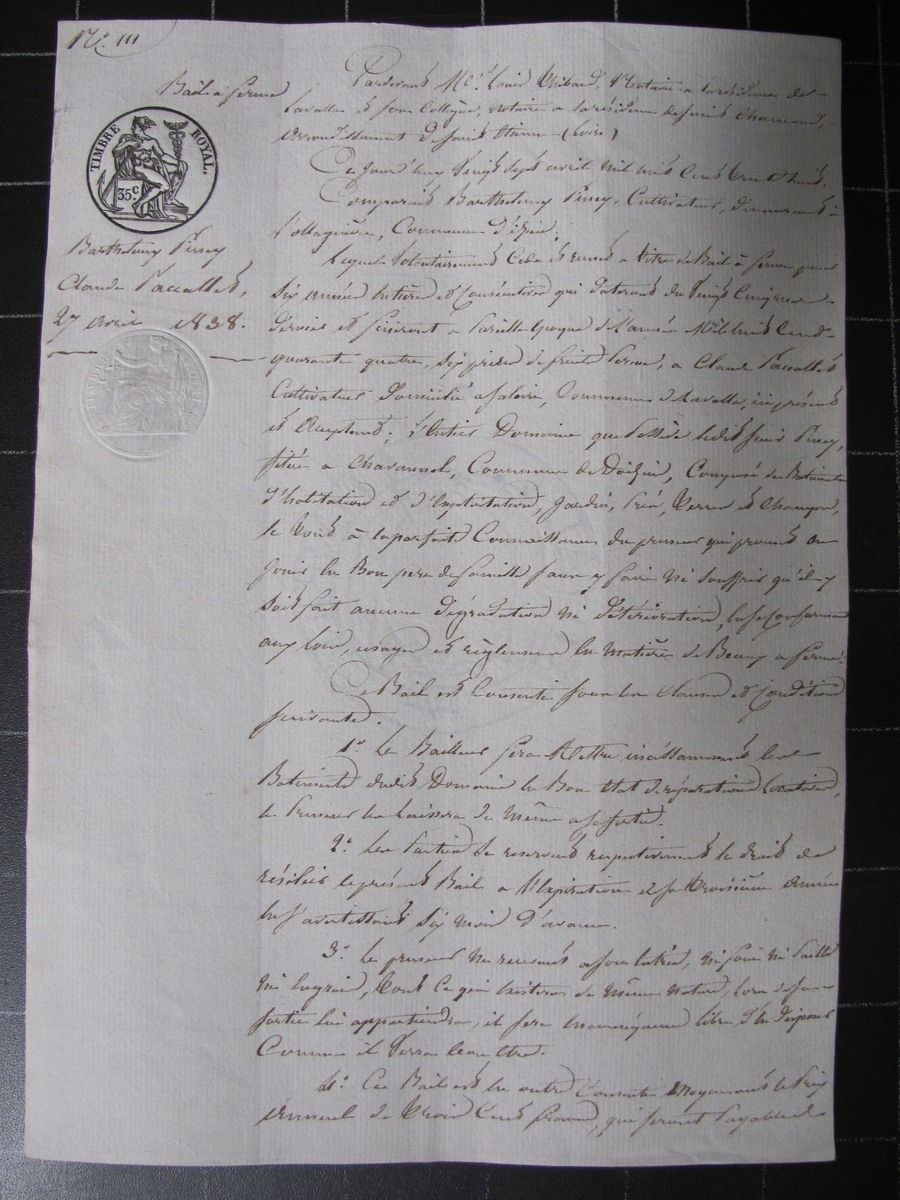 N.º 111
Bail à ferme
TIMBRE ROYAL.
35c.
Barthelemy Piney
Claude Paccallet,
27 avril 1838.
Pardevant Me. Louis Thibaud, Notaire a la résidence de
Lavalla et son Collègue, notaire a la résidence de Saint Chamond,
arrondissement de Saint Etienne (Loire)
Ce jourd'huy Vingt Sept avril mil huit Cent trente huit.
Comparait Barthelemy Piney, Cultivateur, demeurant à
Commune d'
Lequel Volontairement Cede et remet a titre de Bail à ferme pour
Six années entières et Consécutives qui dateront du Vingt Cinq mars
dernier et finiront a Pareille époque de l'année Mil huit Cent
quarante quatre, Six prises de fruits Perçus, a Claude Paccallet
Cultivateur Domicilié a Saleire, Commune de Lavalla, ici présent
et acceptant; l'Entier Domaine que Possède ledit sieur Piney,
Située a Chavannol, Commune de Doizieu, Composée de Batiments
d'habitation et d'Exploitation, Jardin, Pré, Terres et Champs,
le tout à la parfaite Connaissance du preneur qui promet en
Jouir en Bon père de famille sans y faire ni Souffrir qu'il y
Soit fait aucune dégradation ni détérioration, en se Conformant
aux loix, usages et règlements en Matière de Beaux a ferme.
Ce Bail est Consenti sous les Clauses et Conditions
suivantes.
1º Le Bailleur fera Mettre incessamment les
Batiments dudit Domaine en Bon état de réparations locatives,
le Preneur les laissera de même a sa sortie.
2º Les Parties se reservent respectivement le droit de
résilier le présent Bail a l'Expiration de la troisième année
en s'avertissant Six mois d'avance.
3º Le preneur ne recevant a son entrée, ni foin ni Paille
ni Engrais, tout ce qui Existera de même nature, lors de sa
Sortie lui appartiendra, il sera en conséquence libre d'en disposer
Comme il Verra bon être.
4º Ce Bail est en outre Consenti Moyennant le Prix
Annuel de trois Cents francs, qui seront Payables